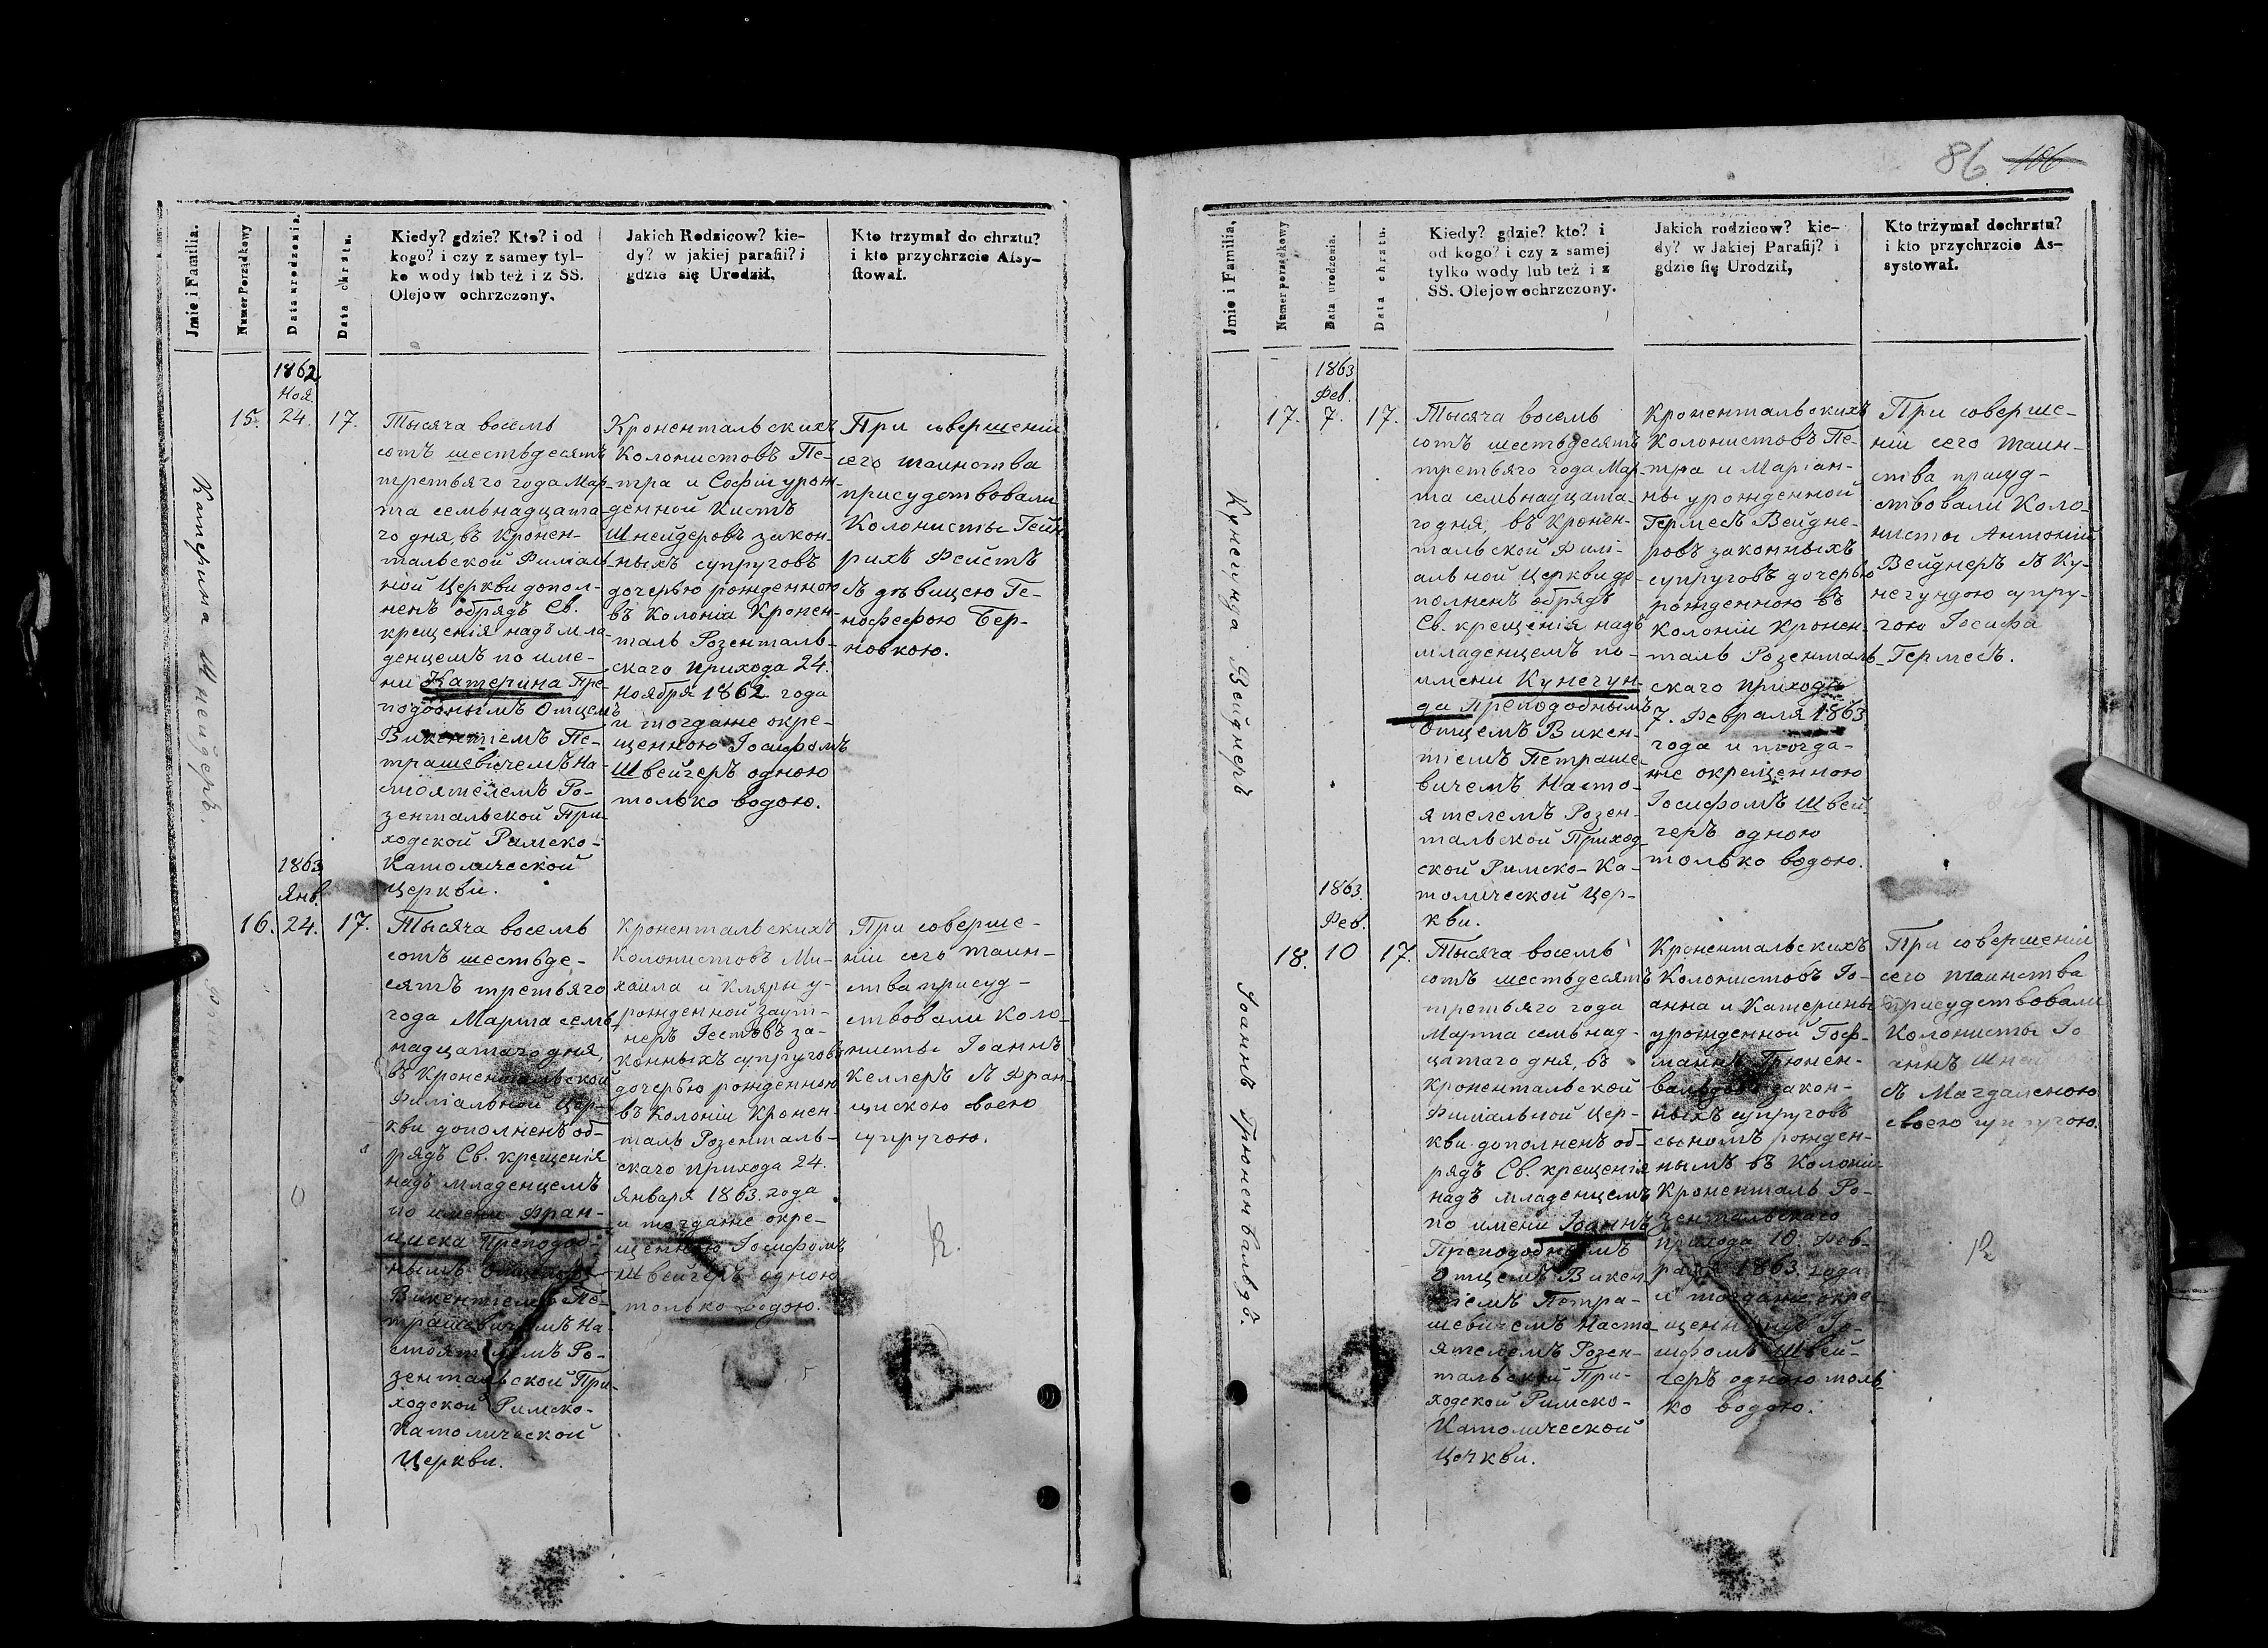 86 106
Jmie i Familia.
Numer Porządkowy
Data urodzenia.
Data chrztu.
Kiedy? gdzie? Kto? i od
kogo? i czy z samey tyl-
ko wody lub też i z SS.
Olejow ochrzczony.
Jakich Rodzicow? kie-
dy? w jakiej parafii? i
gdzie się Urodził.
Kto trzymał do chrztu?
i kto przychrzcie Assy-
stował.
Катерина Шнейдеръ.
1862
Ноя.
15. 24. 17.
Тысяча восемь
сотъ шестьдесятъ
третьяго года Мар-
та семьнадцата-
го дня, въ Кронен-
тальской Филіаль-
ной Церкви допол-
ненъ обрядъ Св.
крещенія надъ мла-
денцемъ по име-
ни Катерина Пре-
подобнымъ Отцемъ
Викентіемъ Пе-
трашевичемъ На-
стоятелемъ Ро-
зентальской При-
ходской Римско-
Католической
Церкви.
Кронентальскихъ
Колонистовъ Пе-
тра и Софіи урож-
денной Кистъ
Шнейдеровъ закон-
ныхъ супруговъ
дочерью рожденною
въ Колоніи Кронен-
таль Розенталь-
скаго прихода 24.
Ноября 1862 года
и тогдаже окре-
щенною Іосифомъ
Швейгеръ одною
только водою.
При совершеніи
сего таинства
присудствовали
Колонисты Гейн-
рихъ Фейстъ
съ дѣвицею Ге-
нофефою Бер-
новкою.
1863
Янв.
16. 24. 17.
Тысяча восемь
сотъ шестьде-
сятъ третьяго
года Марта семь-
надцатаго дня,
въ Кронентальской
Филіальной Цер-
кви дополненъ об-
рядъ Св. крещенія
надъ младенцемъ
по имени Фран-
циска Преподоб-
нымъ Отцемъ
Викентіемъ Пе-
трашевичемъ На-
стоятелемъ Ро-
зентальской При-
ходской Римско-
Католической
Церкви.
Кронентальскихъ
Колонистовъ Ми-
хаила и Кляры у-
рожденной Заут-
неръ Гестовъ за-
конныхъ супруговъ
дочерью рожденною
въ Колоніи Кронен-
таль Розенталь-
скаго прихода 24.
Января 1863. года
и тогдаже окре-
щенною Іосифомъ
Швейгеръ одною
только водою.
При соверше-
ніи сего таин-
ства присуд-
ствовали Коло-
нисты Іоаннъ
Келлеръ съ Фран-
цискою своею
супругою.
Jmie i Familia,
Numer porządkowy
Data urodzenia.
Data chrztu.
Kiedy? gdzie? kto? i
od kogo? i czy z samej
tylko wody lub też i z
SS. Olejow ochrzczony.
Jakich rodzicow? kie-
dy? w Jakiej Parafij? i
gdzie się Urodził,
Kto trzymał dochrztu?
i kto przychrzcie As-
systował.
Кунегунда Вейднеръ
1863
Фев.
17. 7. 17.
Тысяча восемь
сотъ шестьдесятъ
третьяго года Мар-
та семьнадцата-
го дня, въ Кронен-
тальской Филі-
альной Церкви до-
полненъ обрядъ
Св. крещенія надъ
младенцемъ по
имени Кунегун-
да Преподобнымъ
Отцемъ Викен-
тіемъ Петраше-
вичемъ Насто-
ятелемъ Розен-
тальской Приход-
ской Римско-Ка-
толической Цер-
кви.
Кронентальскихъ
Колонистовъ Пе-
тра и Маріан-
ны урожденной
Гермесъ Вейдне-
ровъ законныхъ
супруговъ дочерью
рожденною въ
Колоніи Кронен-
таль Розенталь-
скаго прихода
7. Февраля 1863
года и тогда-
же окрещенною
Іосифомъ Швей-
геръ одною
только водою.
При соверше-
ніи сего таин-
ства присуд-
ствовали Коло-
нисты Антоній
Вейднеръ съ Ку-
негундою супру-
гою Іосифа
Гермесъ.
Іоаннъ Грюненвальдъ.
1863.
Фев.
18. 10 17.
Тысяча восемь
сотъ шестьдесятъ
третьяго года
Марта семьнад-
цатаго дня, въ
Кронентальской
Филіальной Цер-
кви дополненъ об-
рядъ Св. крещенія
надъ младенцемъ
по имени Іоаннъ
Преподобнымъ
Отцемъ Викен-
тіемъ Петра-
шевичемъ Насто-
ятелемъ Розен-
тальской При-
ходской Римско-
Католической
Церкви.
Кронентальскихъ
Колонистовъ Іо-
анна и Катерины
урожденной Гоф-
маннъ Грюнен-
вальдовъ закон-
ныхъ супруговъ
сыномъ рожден-
нымъ въ Колоніи
Кроненталь Ро-
зентальскаго
прихода 10. Фев-
раля 1863. года
и тогдаже окре-
щеннымъ Іо-
сифомъ Швей-
геръ одною толь-
ко водою.
При совершеніи
сего таинства
присудствовали
Колонисты Іо
аннъ
съ Магдаленою
своею супругою.